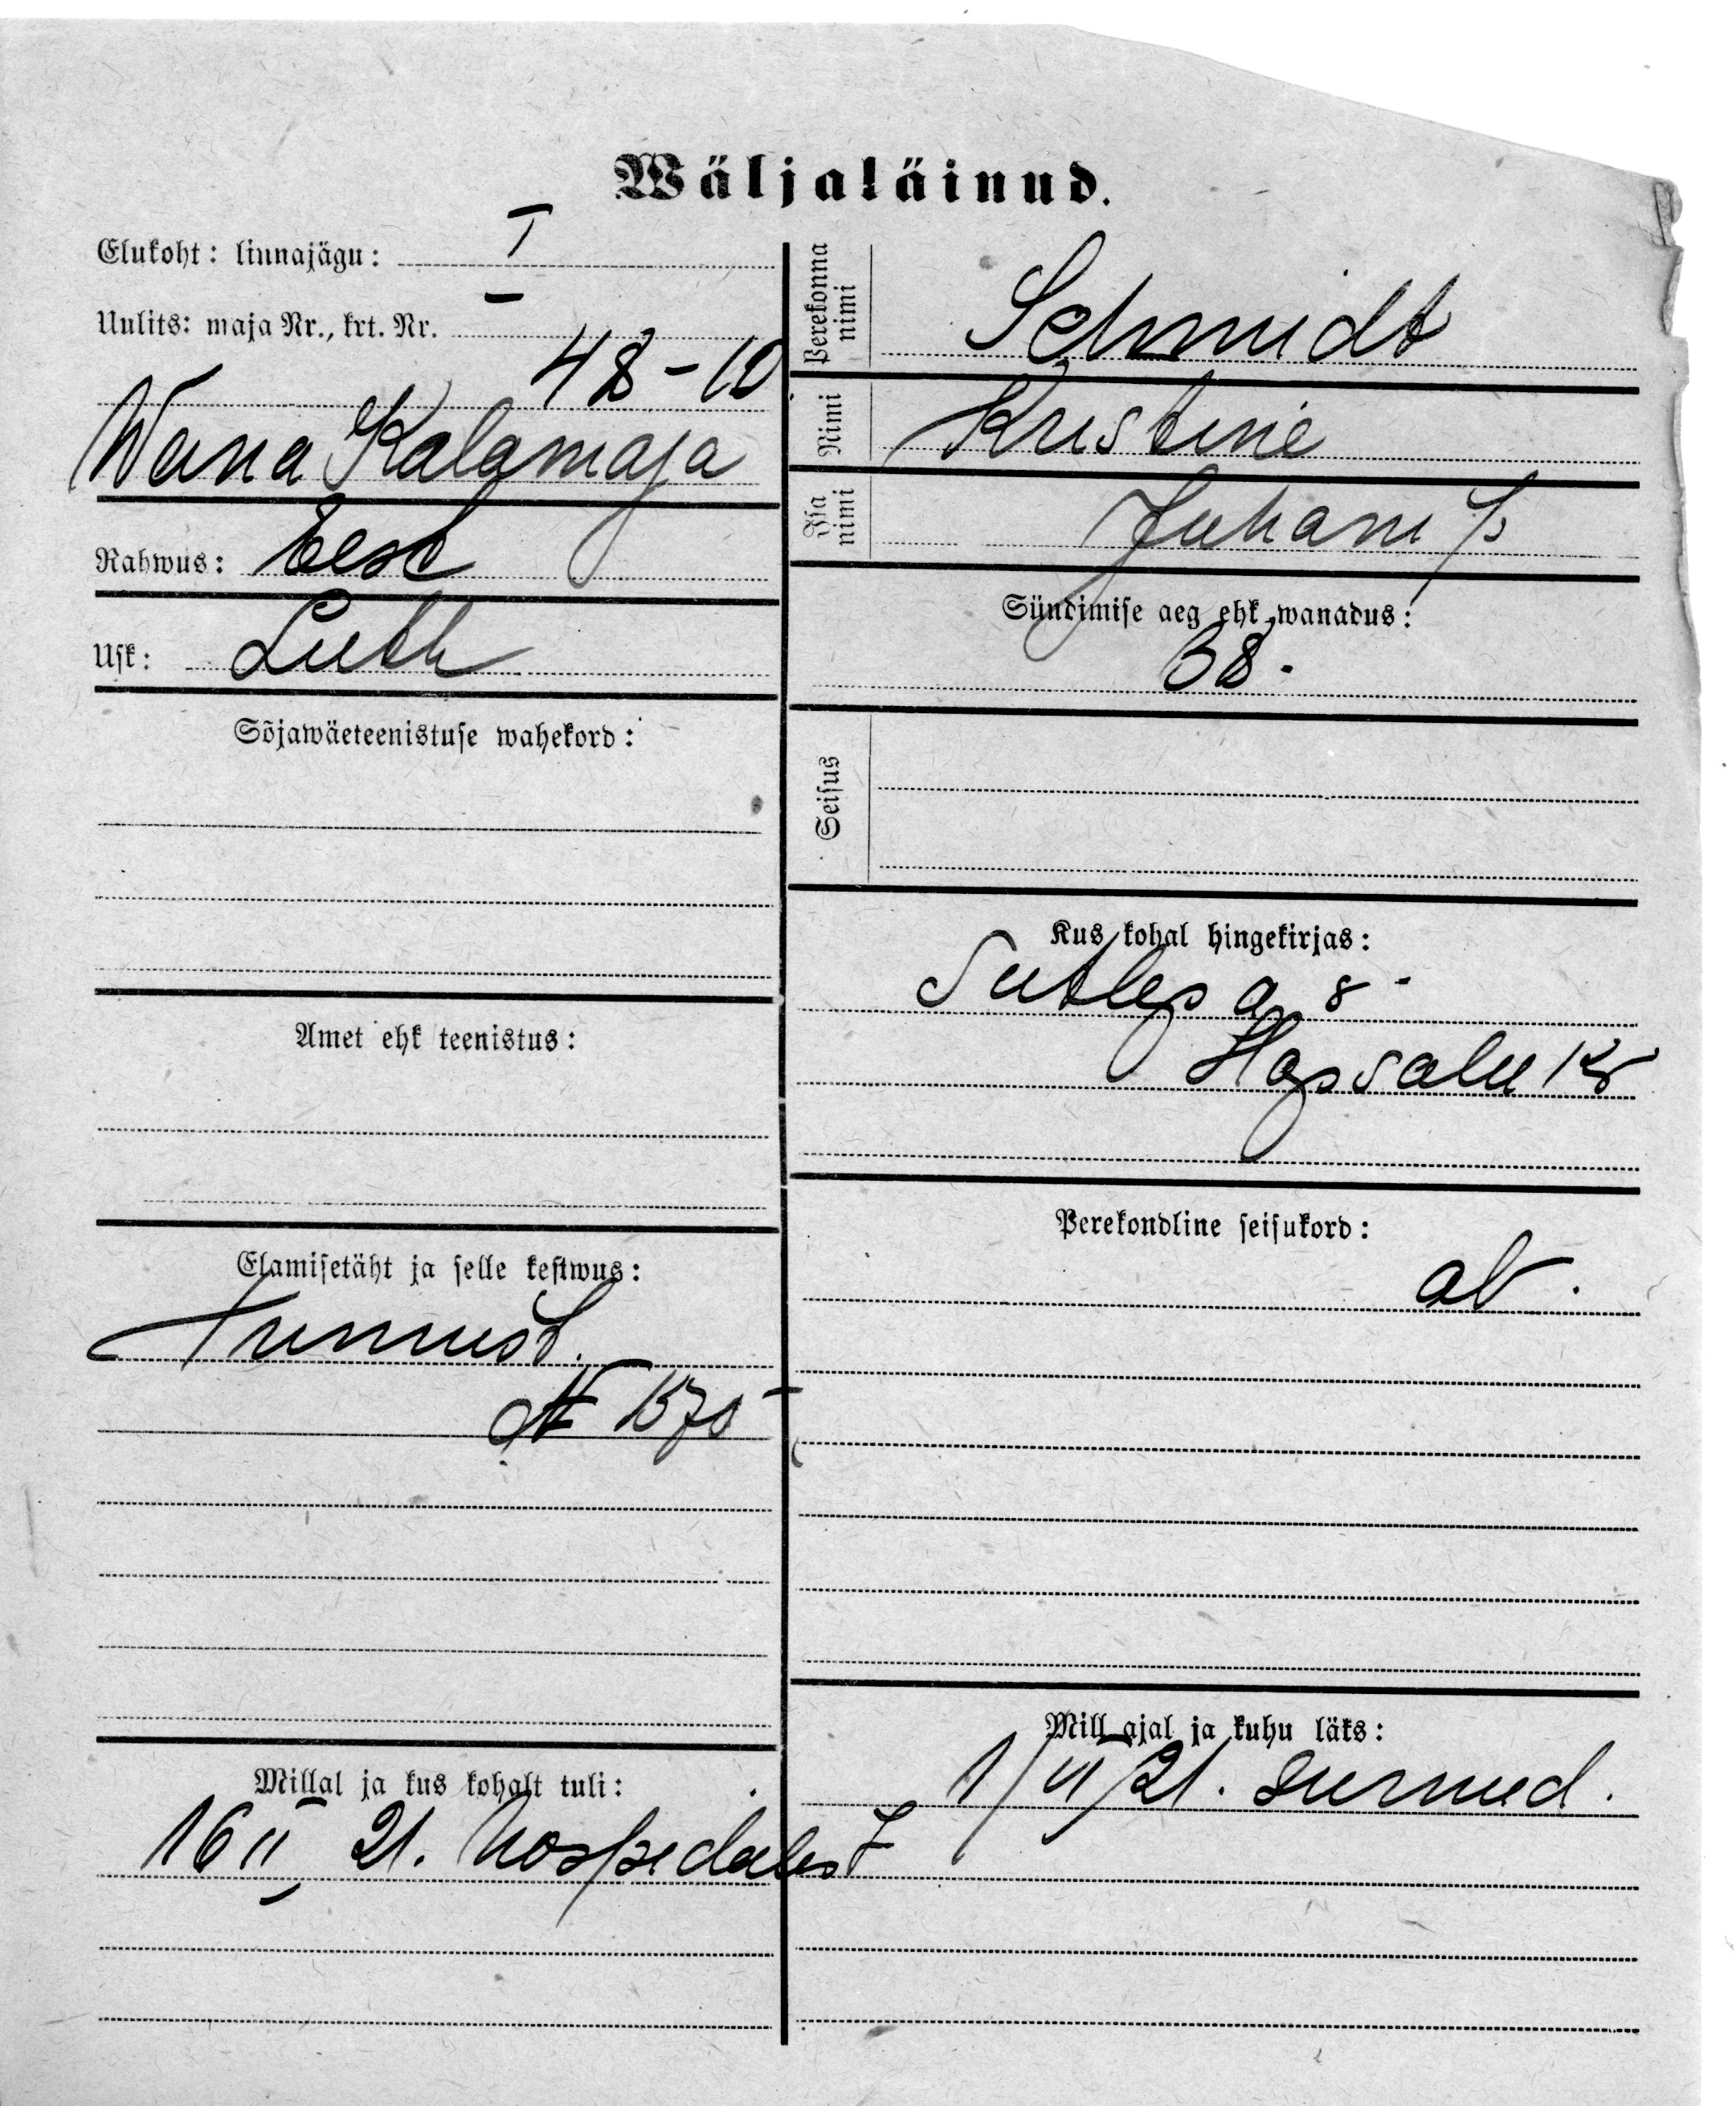 Wäljaläinud.
Elukoht: linnajägu: I
Uulits: maja Nr., krt. Nr.
48-10
Wana Kalamaja
Rahwus: Eest
Usk: Luth
Sõjawäeteenistuse wahekord:
Amet ehk teenistus:
Elamisetäht ja selle kestwus:
Tunnust.
№ 1570
Millal ja kus kohalt tuli:
16 II 21. hospidalist
Perekonna nimi Schmidt
Nimi Kristine
Isa nimi Juhani
Sündimise aeg ehk wanadus:
38.
Seisus
Kus kohal hingekirjas:
Sutlep
Hapsalu Kr
Perekondline seisukord:
ab.
Mill ajal ja kuhu läks:
1/VI/21. surnud.